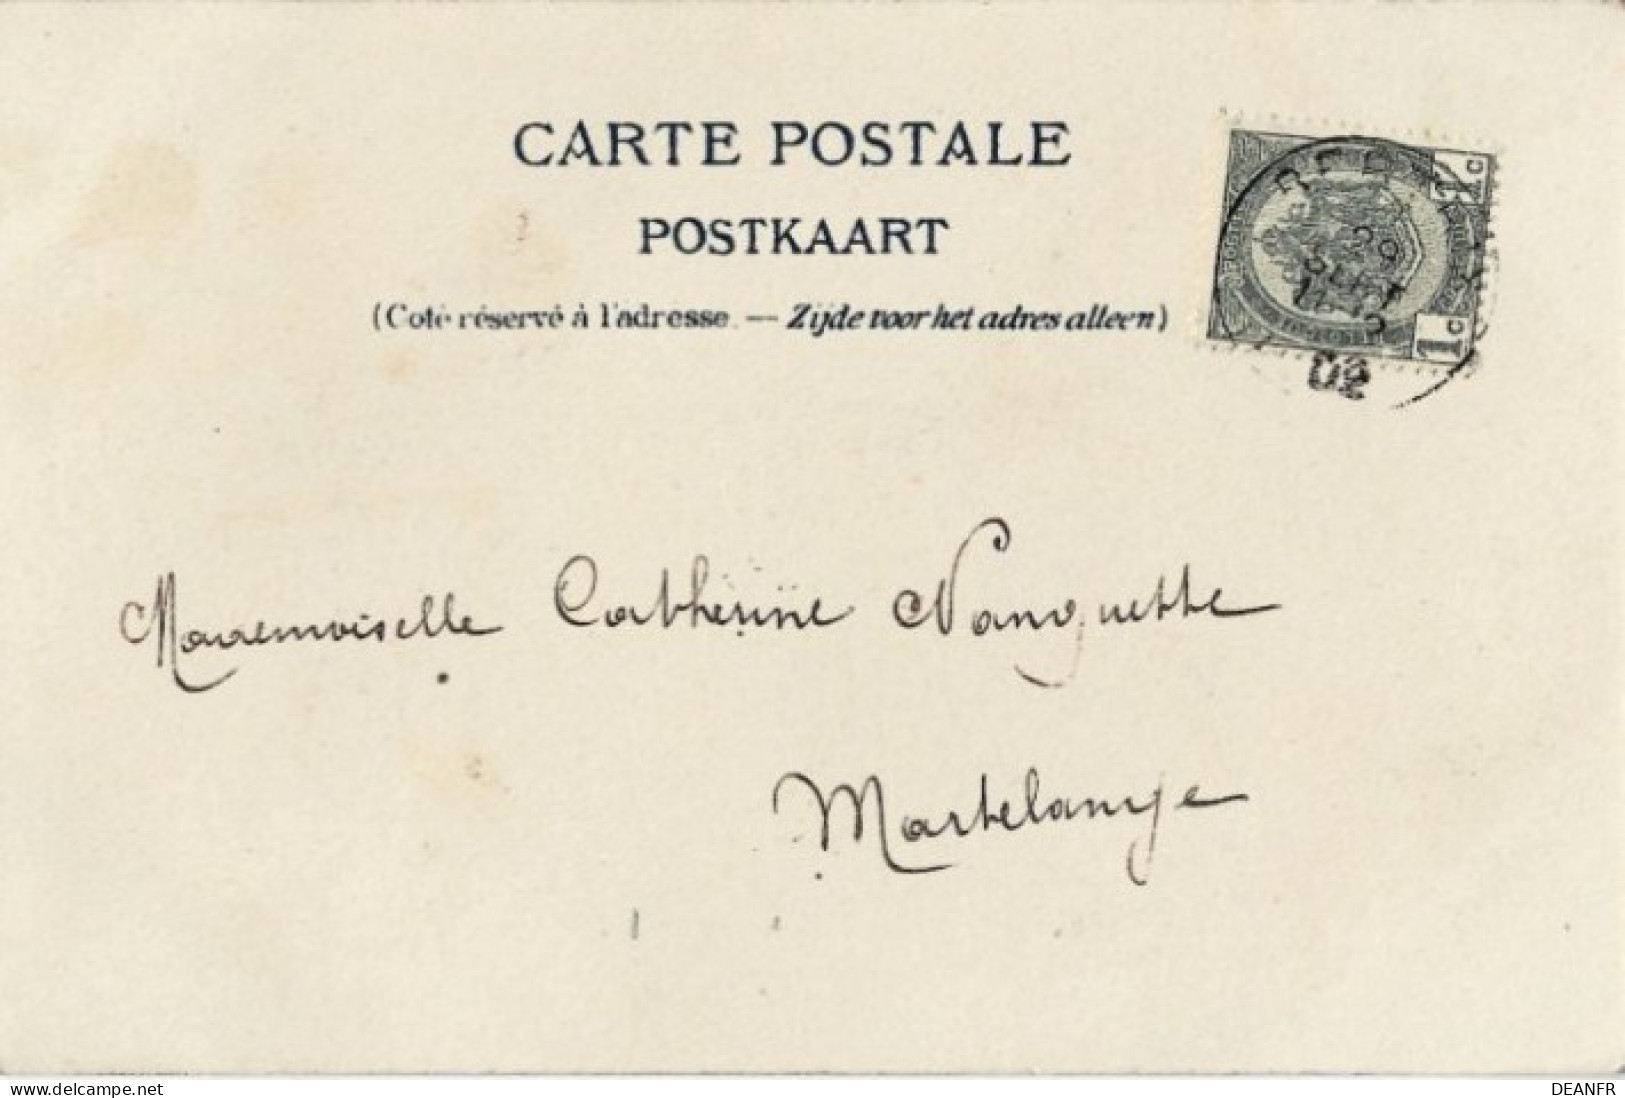 CARTE POSTALE
POSTKAART
(Coté réservé à l'adresse. — Zijde voor het adres alleen)
1c
1c
29
SEPT
02
Mademoiselle Catherine Nanquette
Martelange
www.delcampe.net
DEANFR